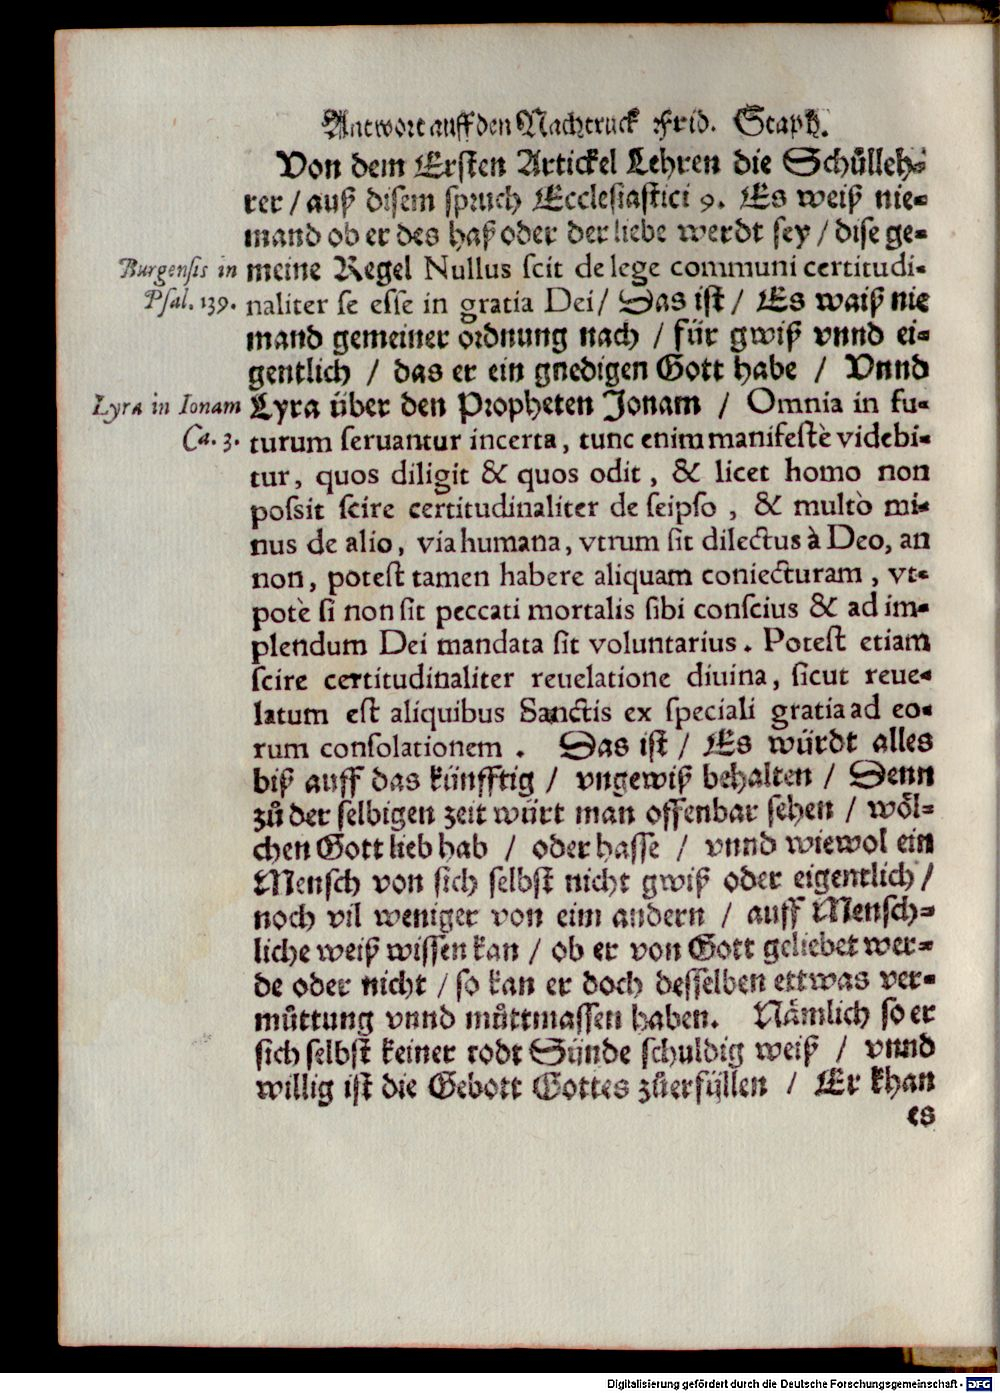 Antwort auff den Nachtruck Frid. Staph.
Von dem Ersten Artickel Lehren die Schůlleh-
rer / auß disem spruch Ecclesiastici 9. Es weiß nie-
mand ob er des haß oder der liebe werdt sey / dise ge-
Burgensis in
meine Regel Nullus scit de lege communi certitudi-
Psal. 139.
naliter se esse in gratia Dei / Das ist / Es waiß nie
mand gemeiner ordnung nach / für gwiß vnnd ei-
gentlich / das er ein gnedigen Gott habe / Vnnd
Lyra in Ionam
Lyra über den Propheten Jonam / Omnia in fu-
Ca. 3.
turum seruantur incerta, tunc enim manifestè videbi-
tur, quos diligit & quos odit, & licet homo non
possit scire certitudinaliter de seipso, & multò mi-
nus de alio, via humana, vtrum sit dilectus à Deo, an
non, potest tamen habere aliquam coniecturam, vt-
potè si non sit peccati mortalis sibi conscius & ad im-
plendum Dei mandata sit voluntarius. Potest etiam
scire certitudinaliter reuelatione diuina, sicut reue-
latum est aliquibus Sanctis ex speciali gratia ad eo-
rum consolationem. Das ist / Es würdt alles
biß auff das künfftig / vngewiß behalten / Denn
zů der selbigen zeit würt man offenbar sehen / wöl-
chen Gott lieb hab / oder hasse / vnnd wiewol ein
Mensch von sich selbst nicht gwiß oder eigentlich /
noch vil weniger von eim andern / auff Mensch-
liche weiß wissen kan / ob er von Gott geliebet wer-
de oder nicht / so kan er doch desselben ettwas ver-
můttung vnnd můttmassen haben. Nämlich so er
sich selbst keiner todt Sünde schuldig weiß / vnnd
willig ist die Gebott Gottes zůerfüllen / Er khan
es
Digitalisierung gefördert durch die Deutsche Forschungsgemeinschaft - DFG